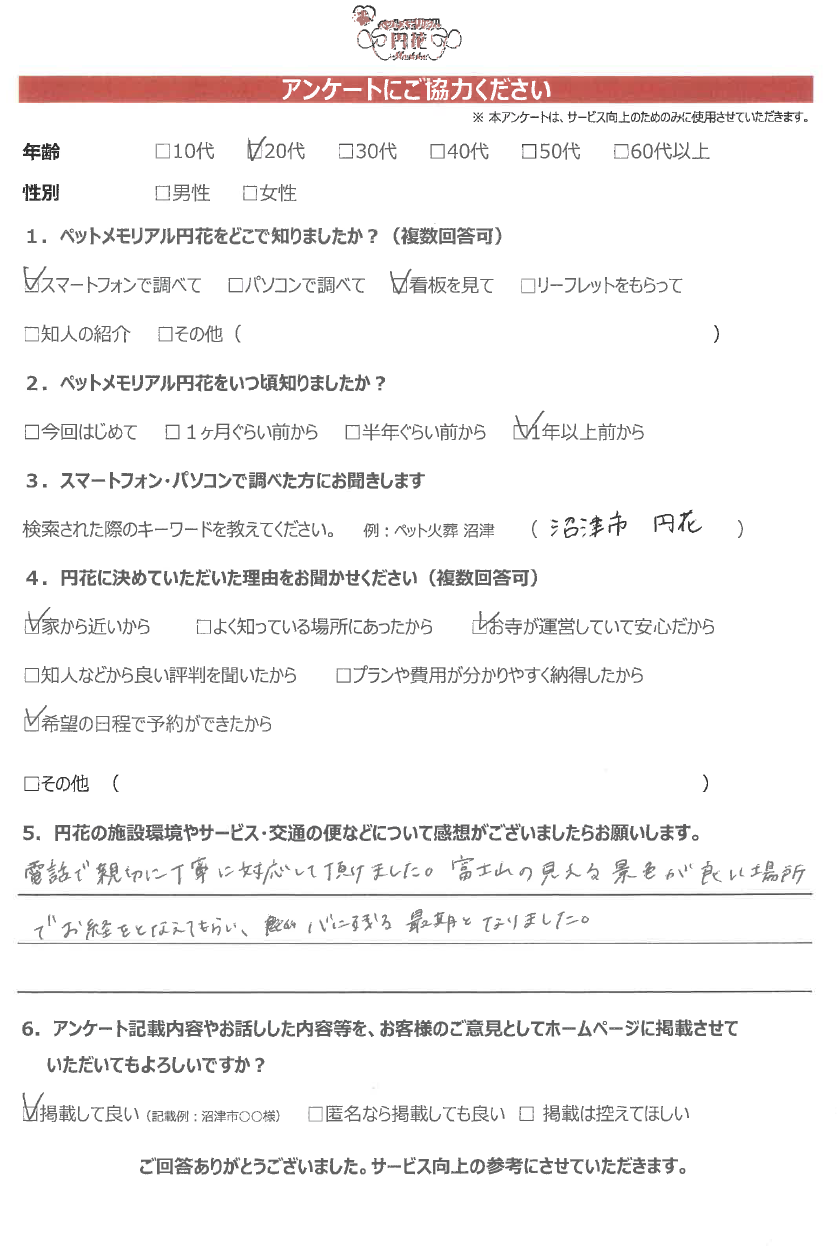 円花
アンケートにご協力ください
※ 本アンケートは、サービス向上のためのみに使用させていただきます。
年齢 □10代 ☑20代 □30代 □40代 □50代 □60代以上
性別 □男性 □女性
1．ペットメモリアル円花をどこで知りましたか？（複数回答可）
☑スマートフォンで調べて □パソコンで調べて ☑看板を見て □リーフレットをもらって
□知人の紹介 □その他（ ）
2．ペットメモリアル円花をいつ頃知りましたか？
□今回はじめて □1ヶ月ぐらい前から □半年ぐらい前から ☑1年以上前から
3．スマートフォン・パソコンで調べた方にお聞きします
検索された際のキーワードを教えてください。 例：ペット火葬 沼津 （ 沼津市 円花 ）
4．円花に決めていただいた理由をお聞かせください（複数回答可）
☑家から近いから □よく知っている場所にあったから ☑お寺が運営していて安心だから
□知人などから良い評判を聞いたから □プランや費用が分かりやすく納得したから
☑希望の日程で予約ができたから
□その他 （ ）
5．円花の施設環境やサービス・交通の便などについて感想がございましたらお願いします。
電話で親切に丁寧に対応して頂けました。富士山の見える景色が良い場所
でお経をとなえてもらい、心に残る最期となりました。
6．アンケート記載内容やお話しした内容等を、お客様のご意見としてホームページに掲載させて
いただいてもよろしいですか？
☑掲載して良い（記載例：沼津市○○様） □匿名なら掲載しても良い □ 掲載は控えてほしい
ご回答ありがとうございました。サービス向上の参考にさせていただきます。